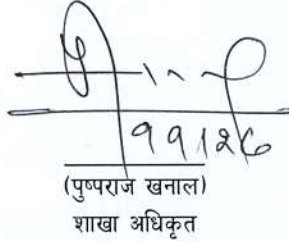 ११।२८
(पुष्पराज खनाल)
शाखा अधिकृत